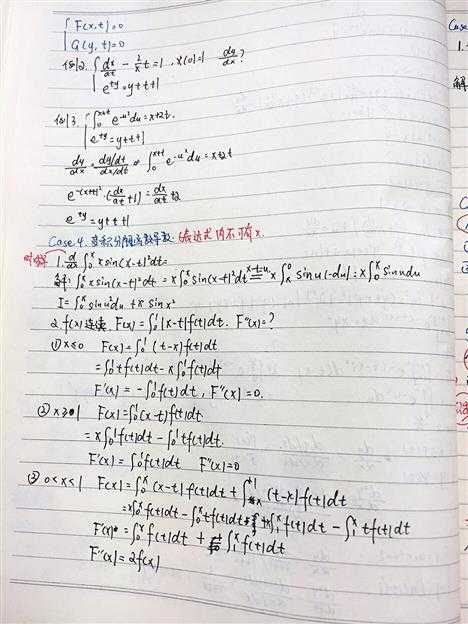 { F(x,t)=0
G(y,t)=0
例2. { dx/dt - 2/x t=1, x(0)=1 dy/dx?
e^{ty}=y+t+1
例3. { ∫_0^{x+t} e^{-u²}du=x+2t.
e^{ty}=y+t+1
dy/dx = (dy/dt)/(dx/dt) ∫_0^{x+t} e^{-u²}du=x+2t
e^{-(x+t)²}(dx/dt+1)=dx/dt+2
e^{ty}=y+t+1
Case 4. 变积分限函数导数. 表达式内不可有x.
1. d/dx ∫_0^x x sin(x-t)²dt=
解: ∫_0^x x sin(x-t)²dt = x∫_0^x sin(x-t)²dt x-t=u x∫_x^0 sin u(-du) = x∫_0^x sin u du
I=∫_0^x sin u² du + x sin x²
2. f(x)连续. F(x)=∫_0^1 |x-t|f(t)dt. F''(x)=?
① x≤0 F(x)=∫_0^1 (t-x)f(t)dt
=∫_0^1 t f(t)dt - x∫_0^1 f(t)dt
F'(x)=-∫_0^1 f(t)dt, F''(x)=0.
② x≥1 F(x)=∫_0^1 (x-t)f(t)dt
=x∫_0^1 f(t)dt - ∫_0^1 t f(t)dt.
F'(x)=∫_0^1 f(t)dt F''(x)=0
③ 0<x<1 F(x)=∫_0^x (x-t)f(t)dt + ∫_x^1 (t-x)f(t)dt
=x∫_0^x f(t)dt - ∫_0^x t f(t)dt + x∫_1^x f(t)dt - ∫_1^x t f(t)dt
F'(x)=∫_0^x f(t)dt + ∫_1^x f(t)dt
F''(x)=2f(x)
Case
1.
解